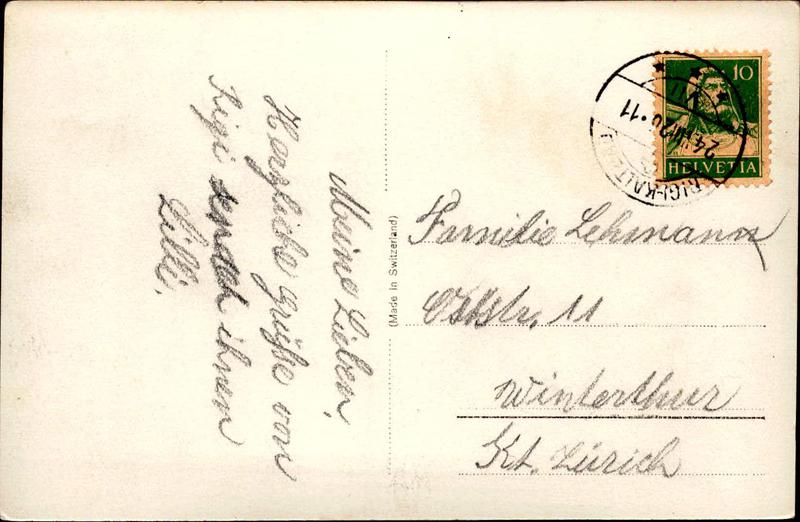 Meine Lieben,
Herzliche Grüße von
Rigi sendet ihnen
Lilli.
(Made in Switzerland)
10
HELVETIA
RIGI-KALTBAD
Familie Lehmann
Oststr. 11
Winterthur
Kt. Zürich